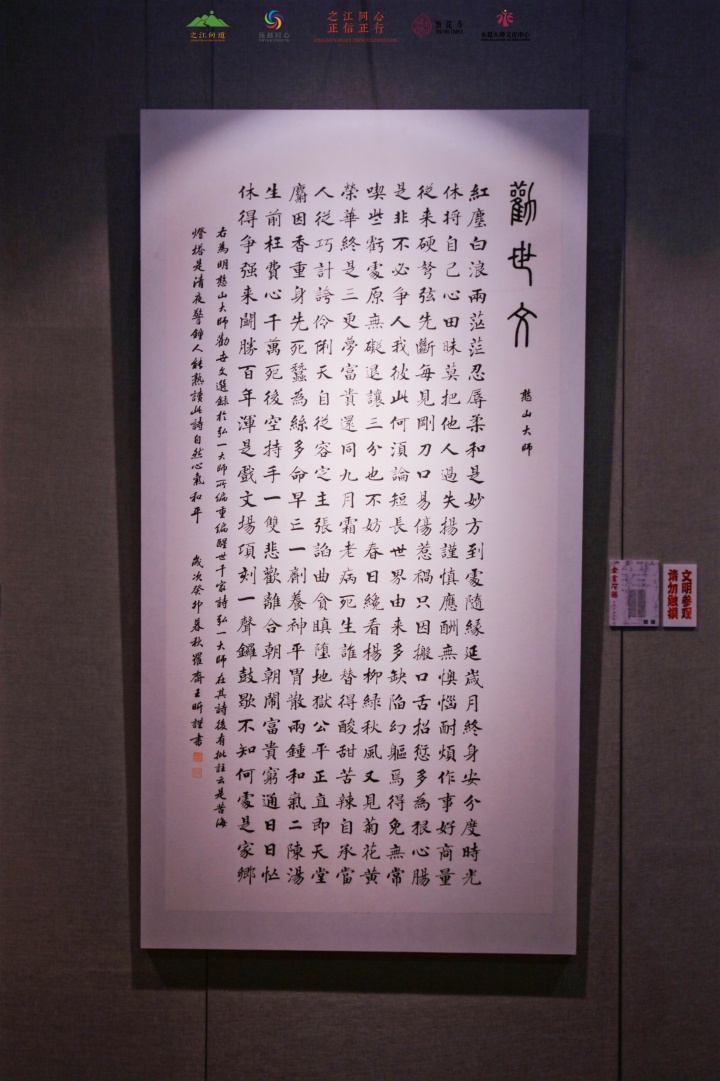 之江问道
之江同心
正信正行
勸世文
憨山大師
紅塵白浪兩茫茫忍辱柔和是妙方到處隨緣延歲月終身安分度時光
休將自己心田昧莫把他人過失揚謹慎應酬無懊惱耐煩作事好商量
從来硬弩弦先斷每見剛刀口易傷惹禍只因搬口舌招愆多為狠心腸
是非不必争人我彼此何須論短長世界由来多缺陷幻軀焉得免無常
喫些虧處原無礙退讓三分也不妨春日纔看楊柳綠秋風又見菊花黄
榮華終是三更夢富貴還同九月霜老病死生誰替得酸甜苦辣自承當
人從巧計誇伶俐天自從容定主張諂曲貪瞋墮地獄公平正直即天堂
麝因香重身先死蠶為絲多命早亡一劑養神平胃散兩鍾和氣二陳湯
生前枉費心千萬死後空持手一雙悲歡離合朝朝鬧富貴窮通日日忙
休得争强来鬭勝百年渾是戲文場頃刻一聲鑼鼓歇不知何處是家鄉
右為明憨山大師勸世文選錄於弘一大師所編重編醒世千家詩弘一大師在其詩後有批註云是苦海
燈塔是清夜警鐘人能熟讀此詩自然心氣和平 歲次癸卯暮秋羅齋王昕謹書
文明参观
请勿触摸